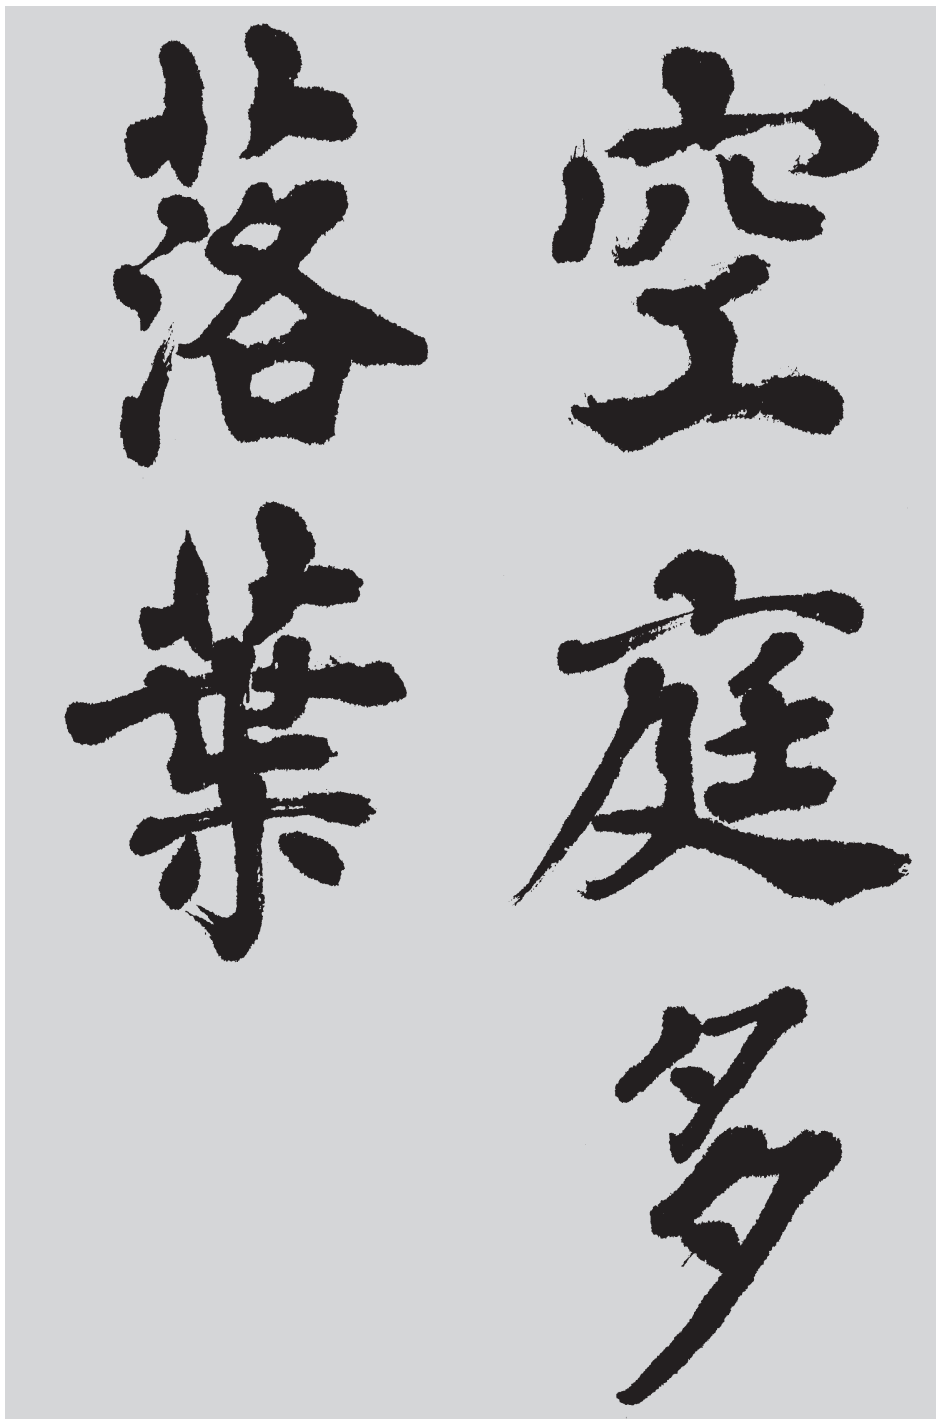 空庭多
落葉